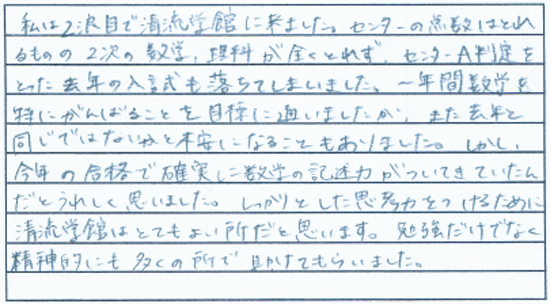 私は2浪目で清流学館に来ました。センターの点数はとれ
るものの2次の数学、理科が全くとれず、センターA判定を
とった去年の入試も落ちてしまいました。一年間数学を
特にがんばることを目標に通いましたが、また去年と
同じではないかと不安になることもありました。しかし、
今年の合格で確実に数学の記述力がついてきていたん
だとうれしく思いました。しっかりとした思考力をつけるために
清流学館はとてもよい所だと思います。勉強だけでなく
精神的にも多くの所で助けてもらいました。